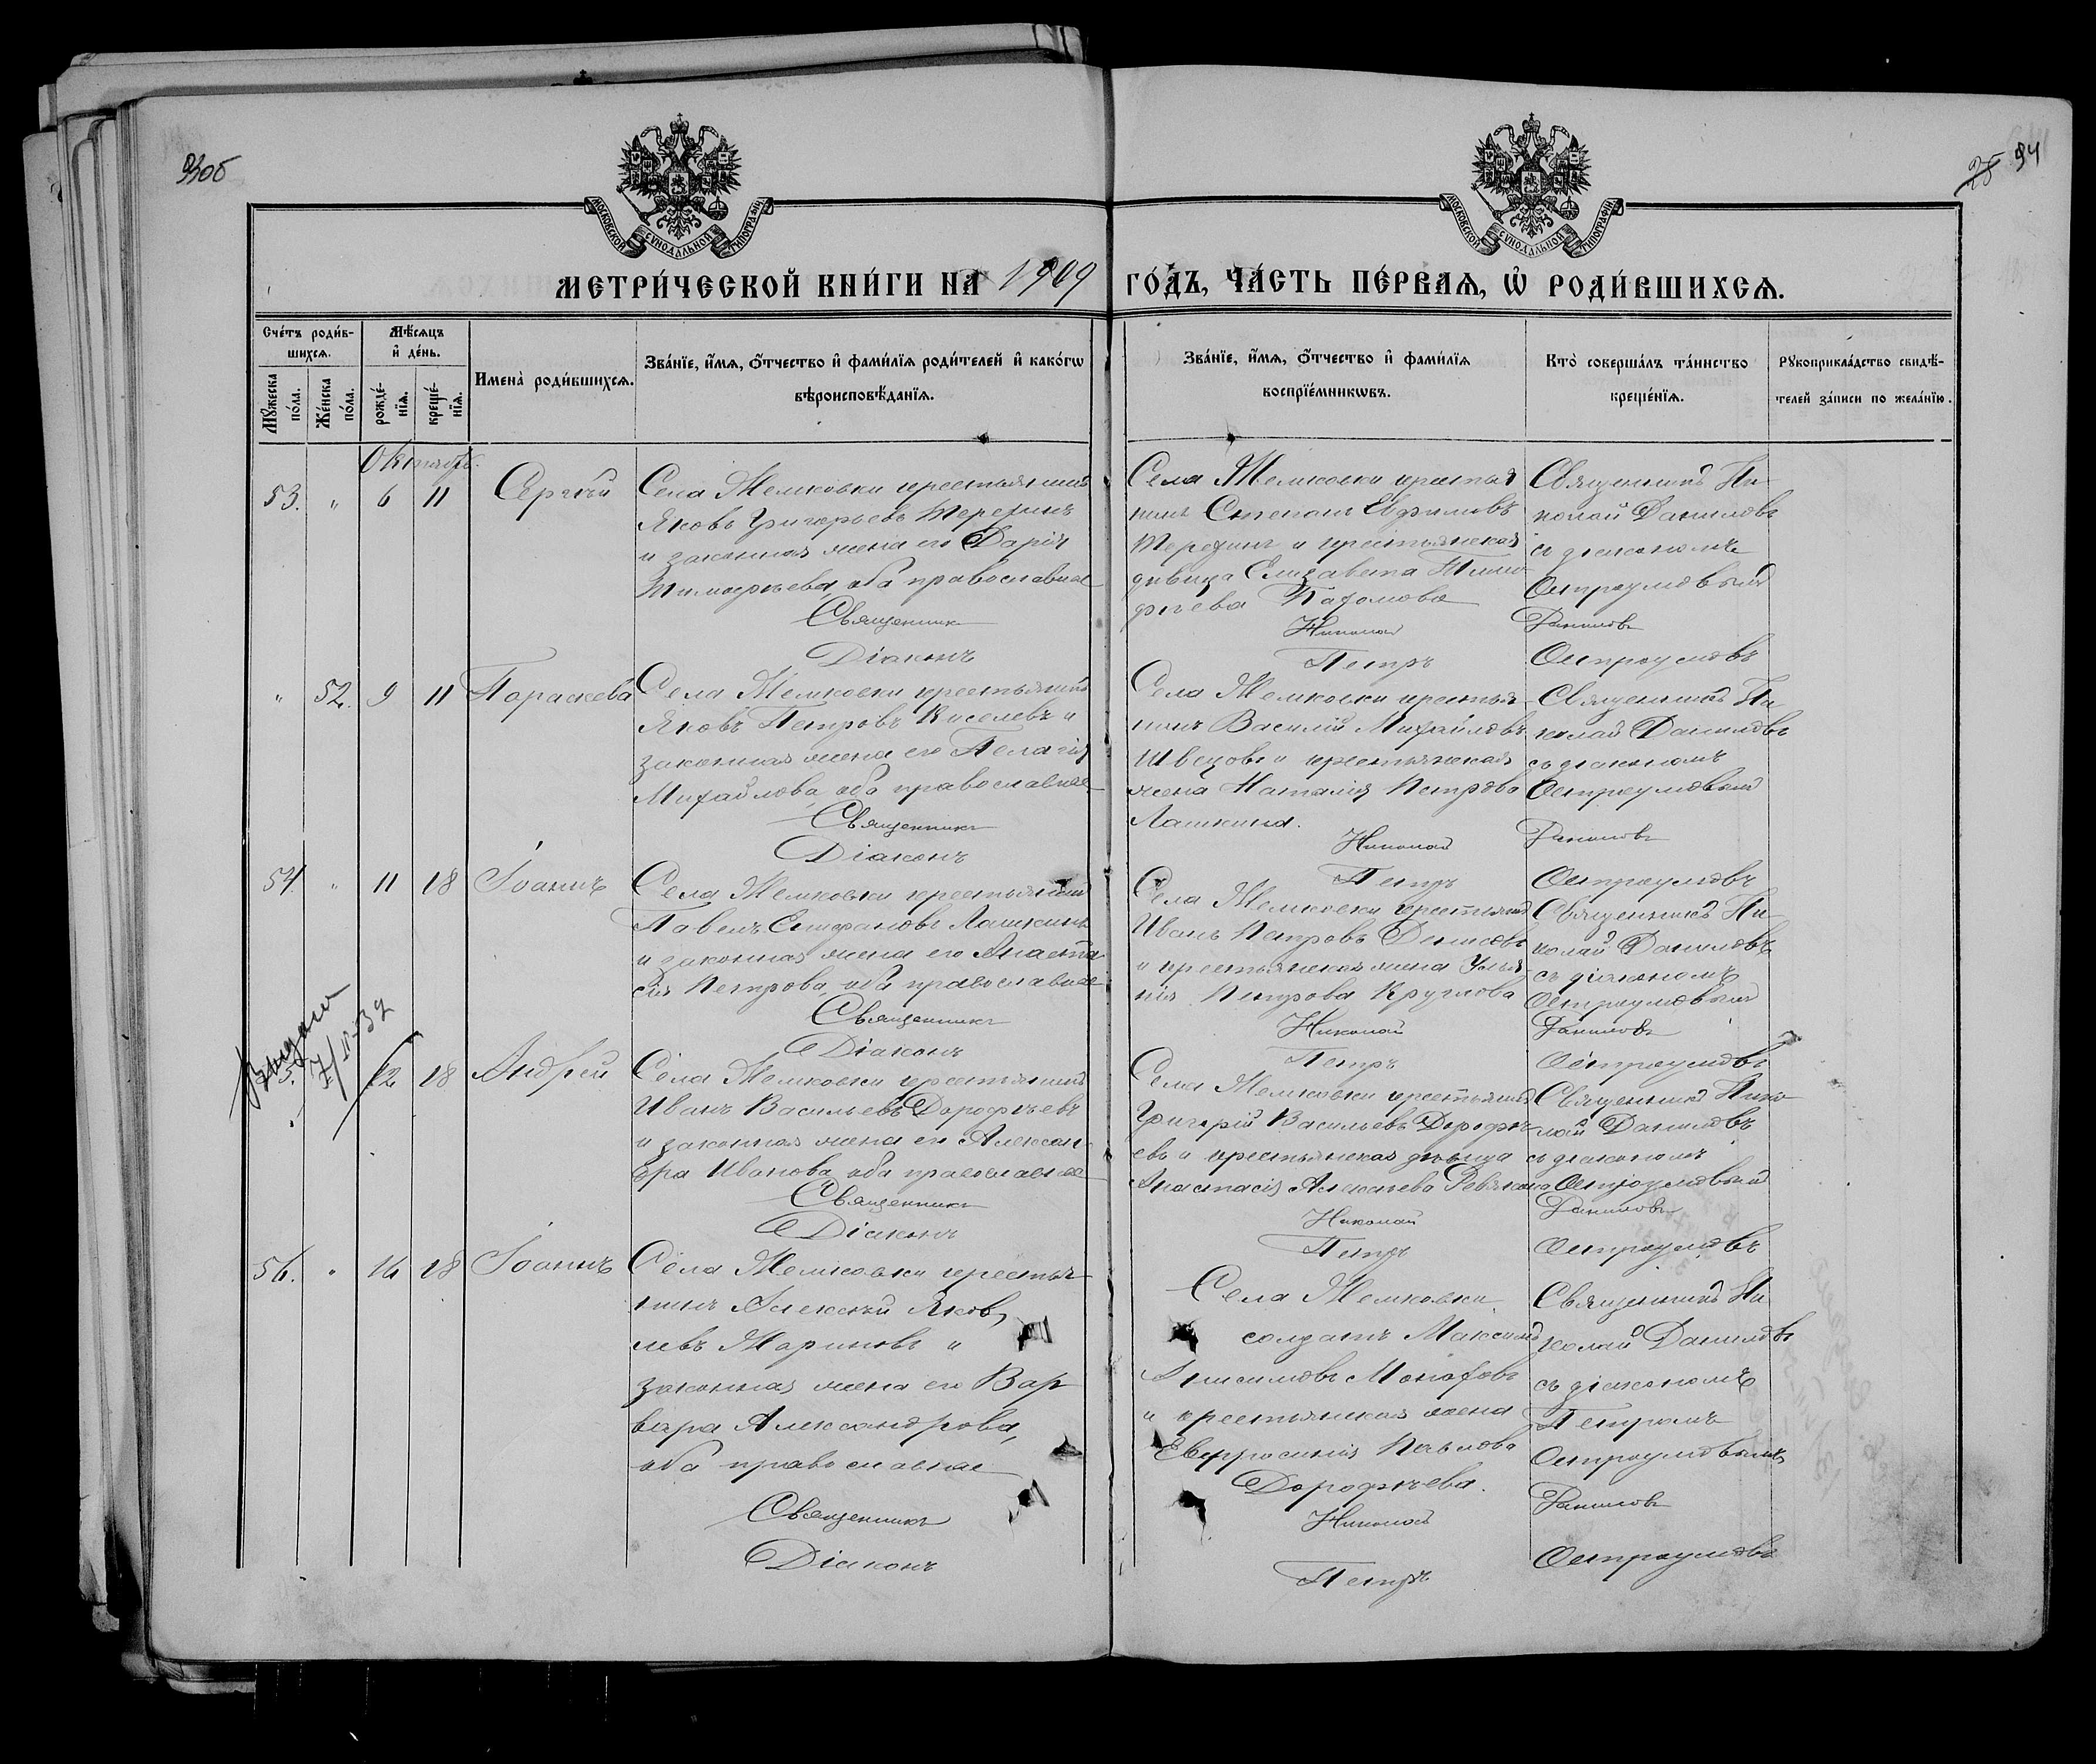 93об
25 94
МОСКОВСКОЙ СѴНОДАЛЬНОЙ ТИПОГРАФІИ
МОСКОВСКОЙ СѴНОДАЛЬНОЙ ТИПОГРАФІИ
МЕТРИ́ЧЕСКОЙ КНИ́ГИ НА 1909 ГО́ДЪ, ЧА́СТЬ ПЕ́РВАѦ, Ѡ҆ РОДИ́ВШИХСѦ.
Сче́тъ роди́в-
шихсѧ.
Мꙋ́жеска по́ла.
Же́нска по́ла.
Мѣ́сѧцъ
и҆ де́нь.
рожде́-
нїѧ.
креще́-
нїѧ.
Имена̀ роди́вшихсѧ.
Зва́нїе, и҆́мѧ, ѻ҆́тчество и҆ фами́лїѧ роди́телей и҆ како́гѡ
вѣроисповѣ́данїѧ.
Зва́нїе, и҆́мѧ, ѻ҆́тчество и҆ фами́лїѧ
воспрїе́мникѡвъ.
Кто̀ соверша́лъ та́инство
креще́нїѧ.
Рꙋкоприкла́дство свидѣ́-
телей за́писи по жела́нїю.
Октябрь.
53. " 6 11 Сергѣй
Села Мемковки крестьянинъ
Яковъ Григорьевъ Терехинъ
и законная жена его Дарія
Тимофѣева, оба православные
Священникъ
Діаконъ
Села Мемковки крестья
нинъ Степанъ Ефимовъ
Терехинъ и крестьянская
дѣвица Елизавета Тимо
фѣева Пахомова
Николай
Петръ
Священникъ Ни
колай Даниловъ
съ діакономъ
Остроумовымъ
Даниловъ
Остроумовъ
" 52. 9 11 Параскева
Села Мемковки крестьянинъ
Яковъ Петровъ Киселевъ и
законная жена его Пелагія
Михайлова, оба православные
Священникъ
Діаконъ
Села Мемковки крестья
нинъ Василій Михайловъ
Швецовъ и крестьянская
жена Наталія Петрова
Лашкина.
Николай
Петръ
Священникъ Ни
колай Даниловъ
съ діакономъ
Остроумовымъ
Даниловъ
Остроумовъ
54 " 11 18 Іоаннъ
Села Мемковки крестьянинъ
Павелъ Епифановъ Лашкинъ
и законная жена его Анаста
сія Петрова, оба православные
Священникъ
Діаконъ
Села Мемковки крестьянинъ
Иванъ Петровъ Денисовъ
и крестьянская жена Улья
нія Петрова Круглова
Николай
Петръ
Священникъ Ни
колай Даниловъ
съ діакономъ
Остроумовымъ
Даниловъ
Остроумовъ
12 18 Андрей
Села Мемковки крестьянинъ
Иванъ Васильевъ Дорофѣевъ
и законная жена его Алексан
дра Иванова, оба православные
Священникъ
Діаконъ
Села Мемковки крестьянинъ
Григорій Васильевъ Дорофѣ
евъ и крестьянская дѣвица
Анастасія Алексѣева
Николай
Петръ
Священникъ Нико
лай Даниловъ
съ діакономъ
Остроумовымъ
Даниловъ
Остроумовъ
56. " 16 18 Іоаннъ
Села Мемковки крестья
нинъ Алексѣй Яков
левъ Мариновъ и
законная жена его Вар
вара Александрова,
оба православные
Священникъ
Діаконъ
Села Мемковки
солдатъ Максимъ
Анисимовъ Монаховъ
и крестьянская жена
Евфросинія Павлова
Дорофѣева.
Николай
Петръ
Священникъ Ни
колай Даниловъ
съ діакономъ
Петромъ
Остроумовымъ
Даниловъ
Остроумовъ